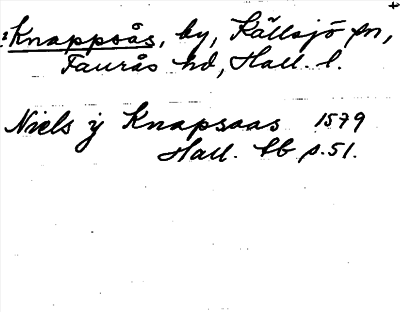 Knappsås, by, Källsjö sn,
Faurås hd, Hall. l.
Niels ÿ Knapsaas 1579
Hall. Lb p. 51.